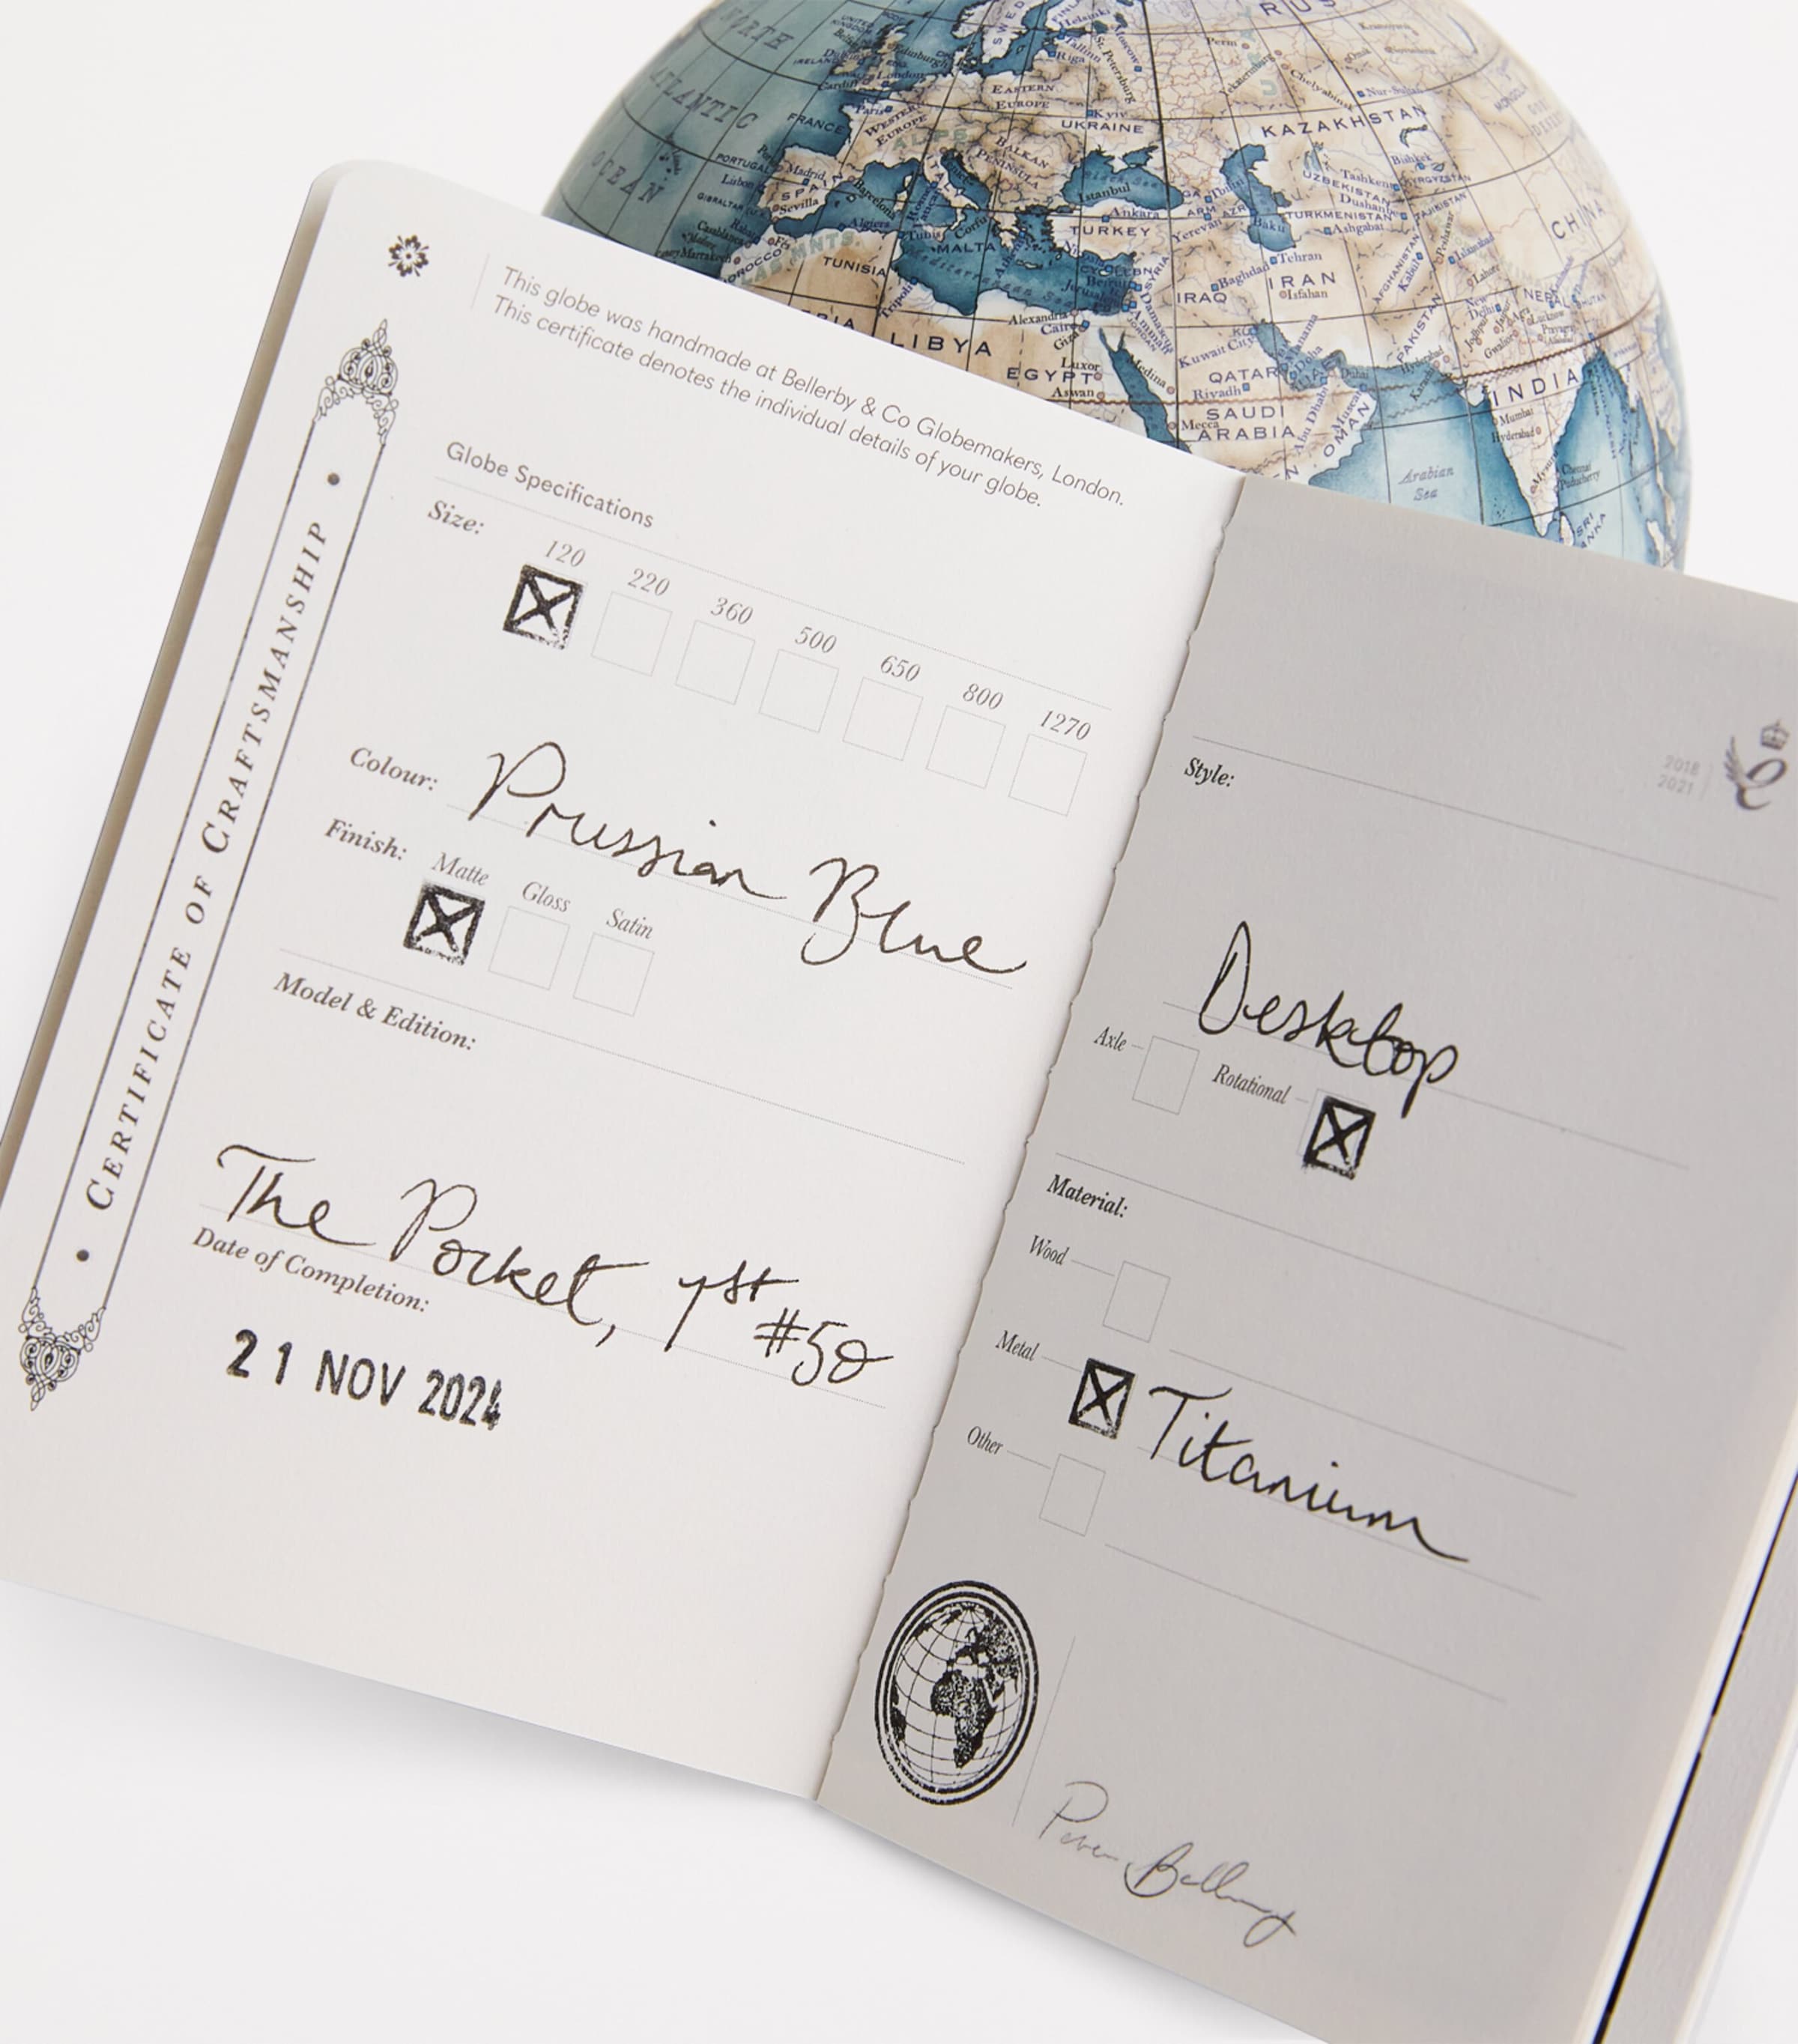 NORTH
ATLANTIC
OCEAN
RUS
SWED
Helsinki
Tallinn
Riga
St. Petersburg
Moscow
Perm
Yekaterinburg
Chelyabinsk
Nur-Sultan
Edinburgh
IRELAND
London
Cardiff
Paris
FRANCE
WESTERN
EUROPE
EASTERN
EUROPE
Kyiv
UKRAINE
KAZAKHSTAN
MONGOL
GOBI
DESERT
ALPS
BALKAN
PENINSULA
ITALY
PORTUGAL
Madrid
SPAIN
Barcelona
Lisbon
Sevilla
GIBRALTAR
Istanbul
Ankara
TURKEY
Tbilisi
ARM
AZR
Yerevan
Baku
Bishkek
KYRGYZSTAN
Tashkent
UZBEKISTAN
Dushanbe
TAJIKISTAN
TURKMENISTAN
Ashgabat
CHINA
Casablanca
Rabat
Fes
Marrakech
MOROCCO
ATLAS MNTS.
Algiers
Tunis
TUNISIA
MALTA
Corfu
Athens
Mediterranean Sea
Tripoli
LIBYA
Alexandria
Cairo
Giza
EGYPT
Luxor
Aswan
SYRIA
Beirut
Jerusalem
Damascus
Amman
JORDAN
IRAQ
Baghdad
Tehran
IRAN
Isfahan
AFGHANISTAN
Kabul
Islamabad
Peshawar
Lahore
PAKISTAN
New
Delhi
NEPAL
Kuwait City
Manama
Doha
QATAR
Riyadh
SAUDI
ARABIA
Medina
Mecca
Abu Dhabi
Muscat
OMAN
Hyderabad
Karachi
INDIA
Mumbai
Hyderabad
Chennai
Puducherry
Arabian
Sea
SRI
ANKA
This globe was handmade at Bellerby & Co Globemakers, London.
This certificate denotes the individual details of your globe.
CERTIFICATE OF CRAFTSMANSHIP
Globe Specifications
Size:
120 220 360 500 650 800 1270
Colour: Prussian Blue
Finish: Matte Gloss Satin
Model & Edition:
The Pocket, 1st #50
Date of Completion:
21 NOV 2024
2018
2021
Style:
Desktop
Axle Rotational
Material:
Wood
Metal Titanium
Other
Peter Bellerby